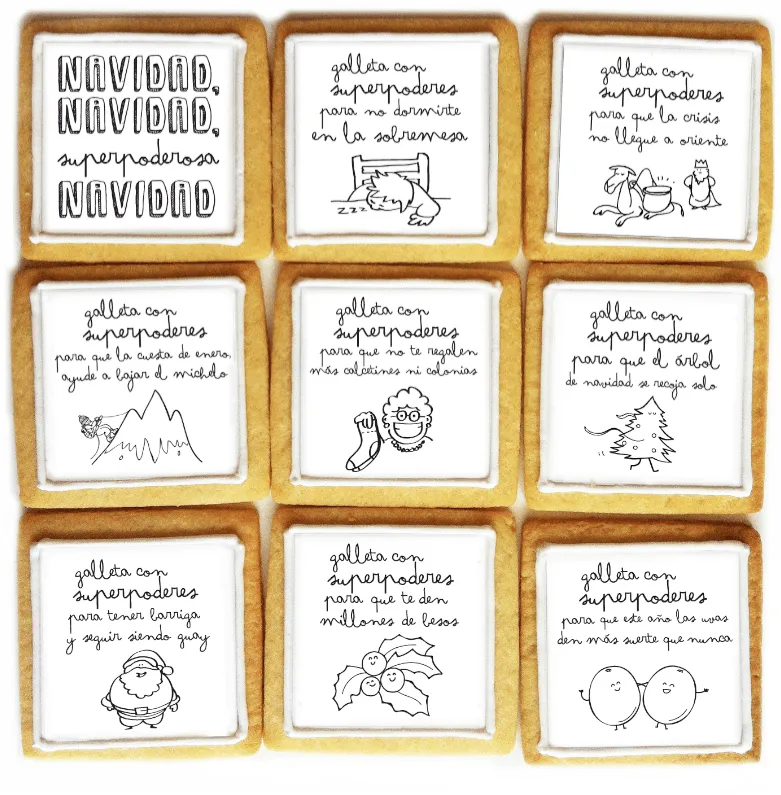 NAVIDAD,
NAVIDAD,
superpoderosa
NAVIDAD
galleta con
superpoderes
para no dormirte
en la sobremesa
zzz
galleta con
superpoderes
para que la crisis
no llegue a oriente
galleta con
superpoderes
para que la cuesta de enero
ayude a bajar el michelo
galleta con
superpoderes
para que no te regalen
más calcetines ni colonias
galleta con
superpoderes
para que el árbol
de navidad se recoja solo
galleta con
superpoderes
para tener barriga
y seguir siendo guay
galleta con
superpoderes
para que te den
millones de besos
galleta con
superpoderes
para que este año las uvas
den más suerte que nunca